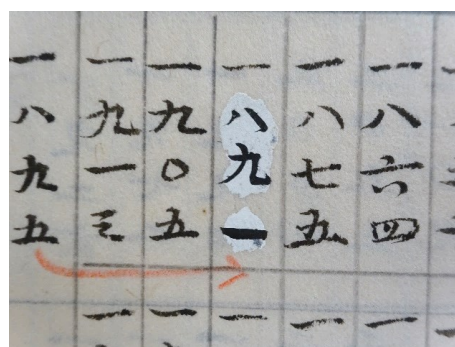 一八六四
一八七五
一八九一
一九〇五
一九一三
一八九五
一
一
一
一
一